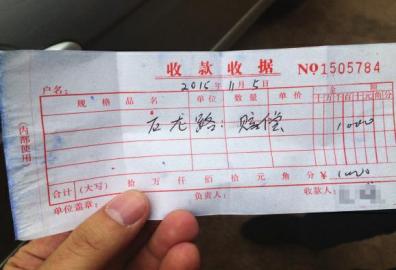 收款收据 NO 1505784
户名: 2015年11月5日
规格品名 单位 数量 单价 金额
十万千百十元角分
石龙路:赔偿 1000
(内部使用)
合计(大写) 拾 万 仟 佰 拾 元 角 分 ¥ 1000
单位盖章: 负责人: 收款人: